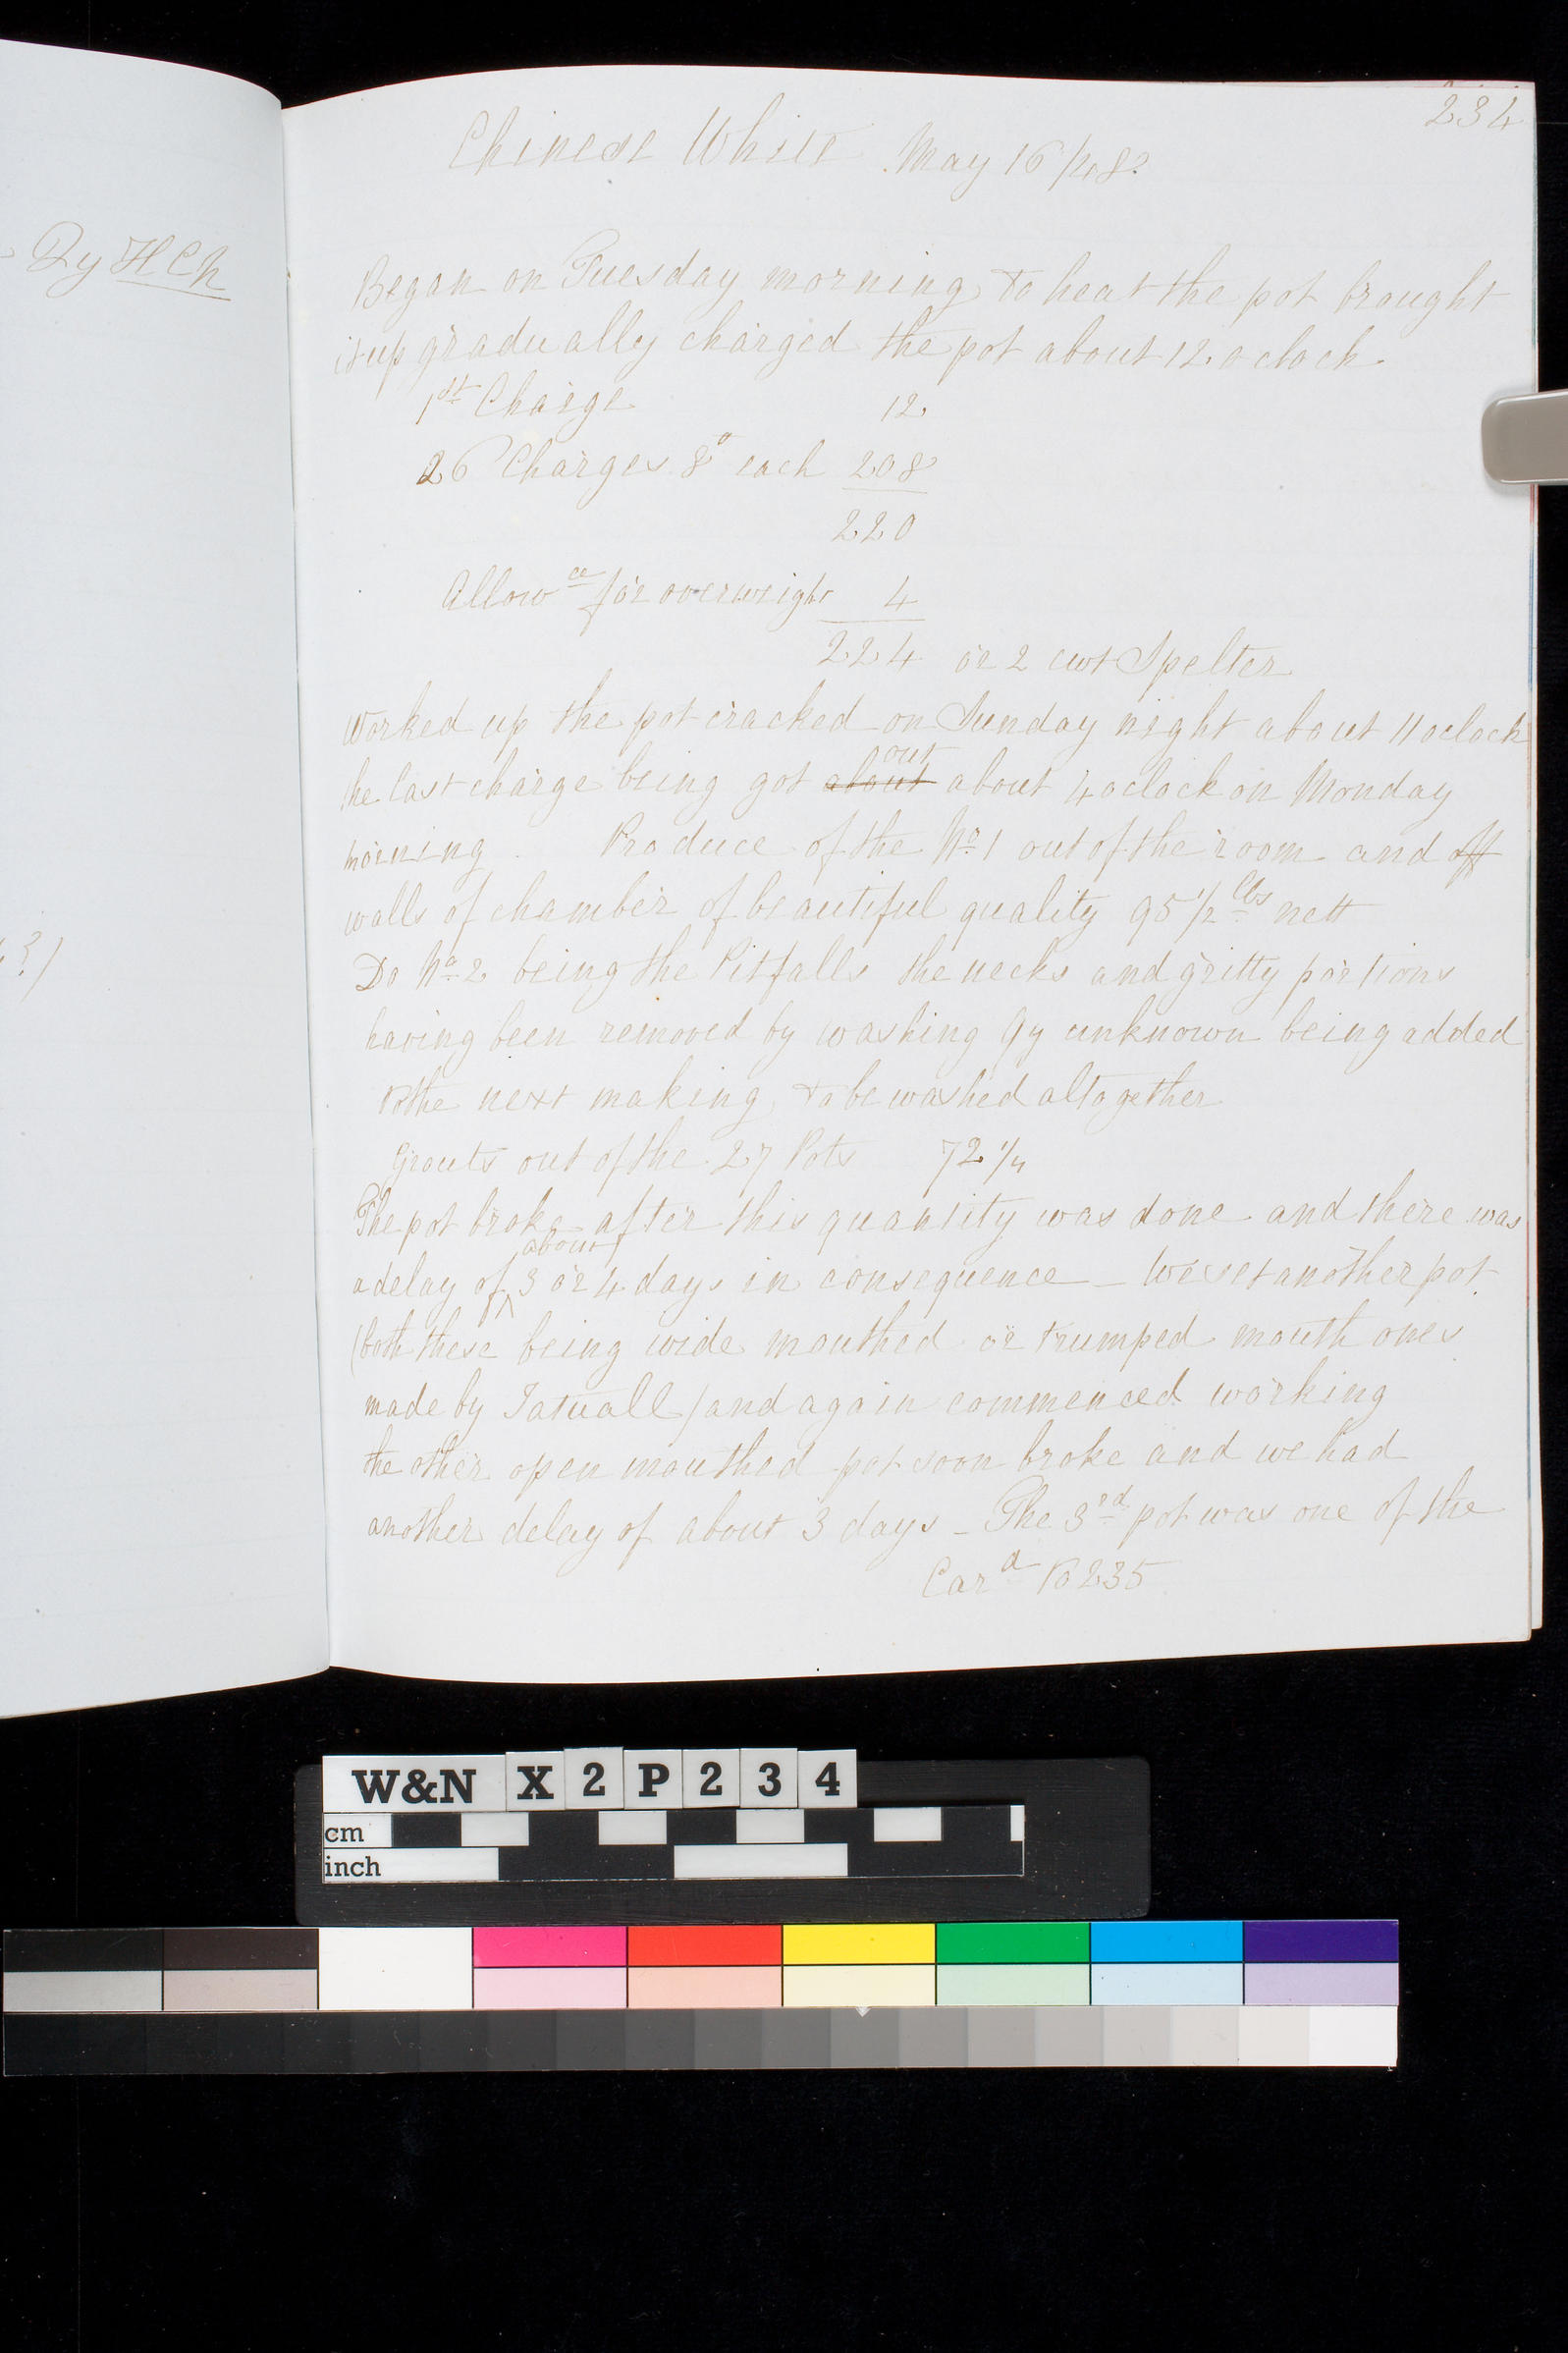 234
Chinese White May 16
Qy HCN
Began on Tuesday morning to heat the pot brought
it up gradually charged the pot about 12 o clock
1st Charge 12
26 Charges 8 each 208
220
Allowce for overweight 4
224 or 2 cwt Spelter
Worked up the pot cracked on Sunday night about 11 oclock
he last charge being got about out about 4 oclock on Monday
morning Produce of the No 1 out of the room and off
walls of chamber of beautiful quality 95 1/2 lbs nett
Do No 2 being the Pitfalls the necks and gritty portions
having been removed by washing Qy unknown being added
to the next making to be washed altogether
Grouts out of the 27 Pots 72 1/4
The pot broke after this quantity was done and there was
a delay of about 3 or 4 days in consequence – We set another pot
(both these being wide mouthed or trumped mouth ones
made by Tatuall) and again commenced working
the other open mouthed pot soon broke and we had
another delay of about 3 days – The 3rd pot was one of the
Card to 235
W&N X2P234
cm
inch